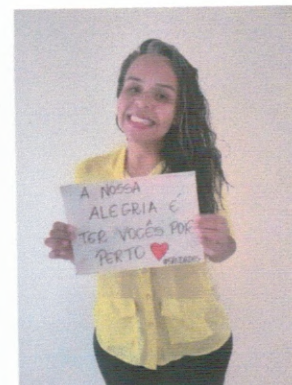 A NOSSA
ALEGRIA É
TER VOCÊS POR
PERTO